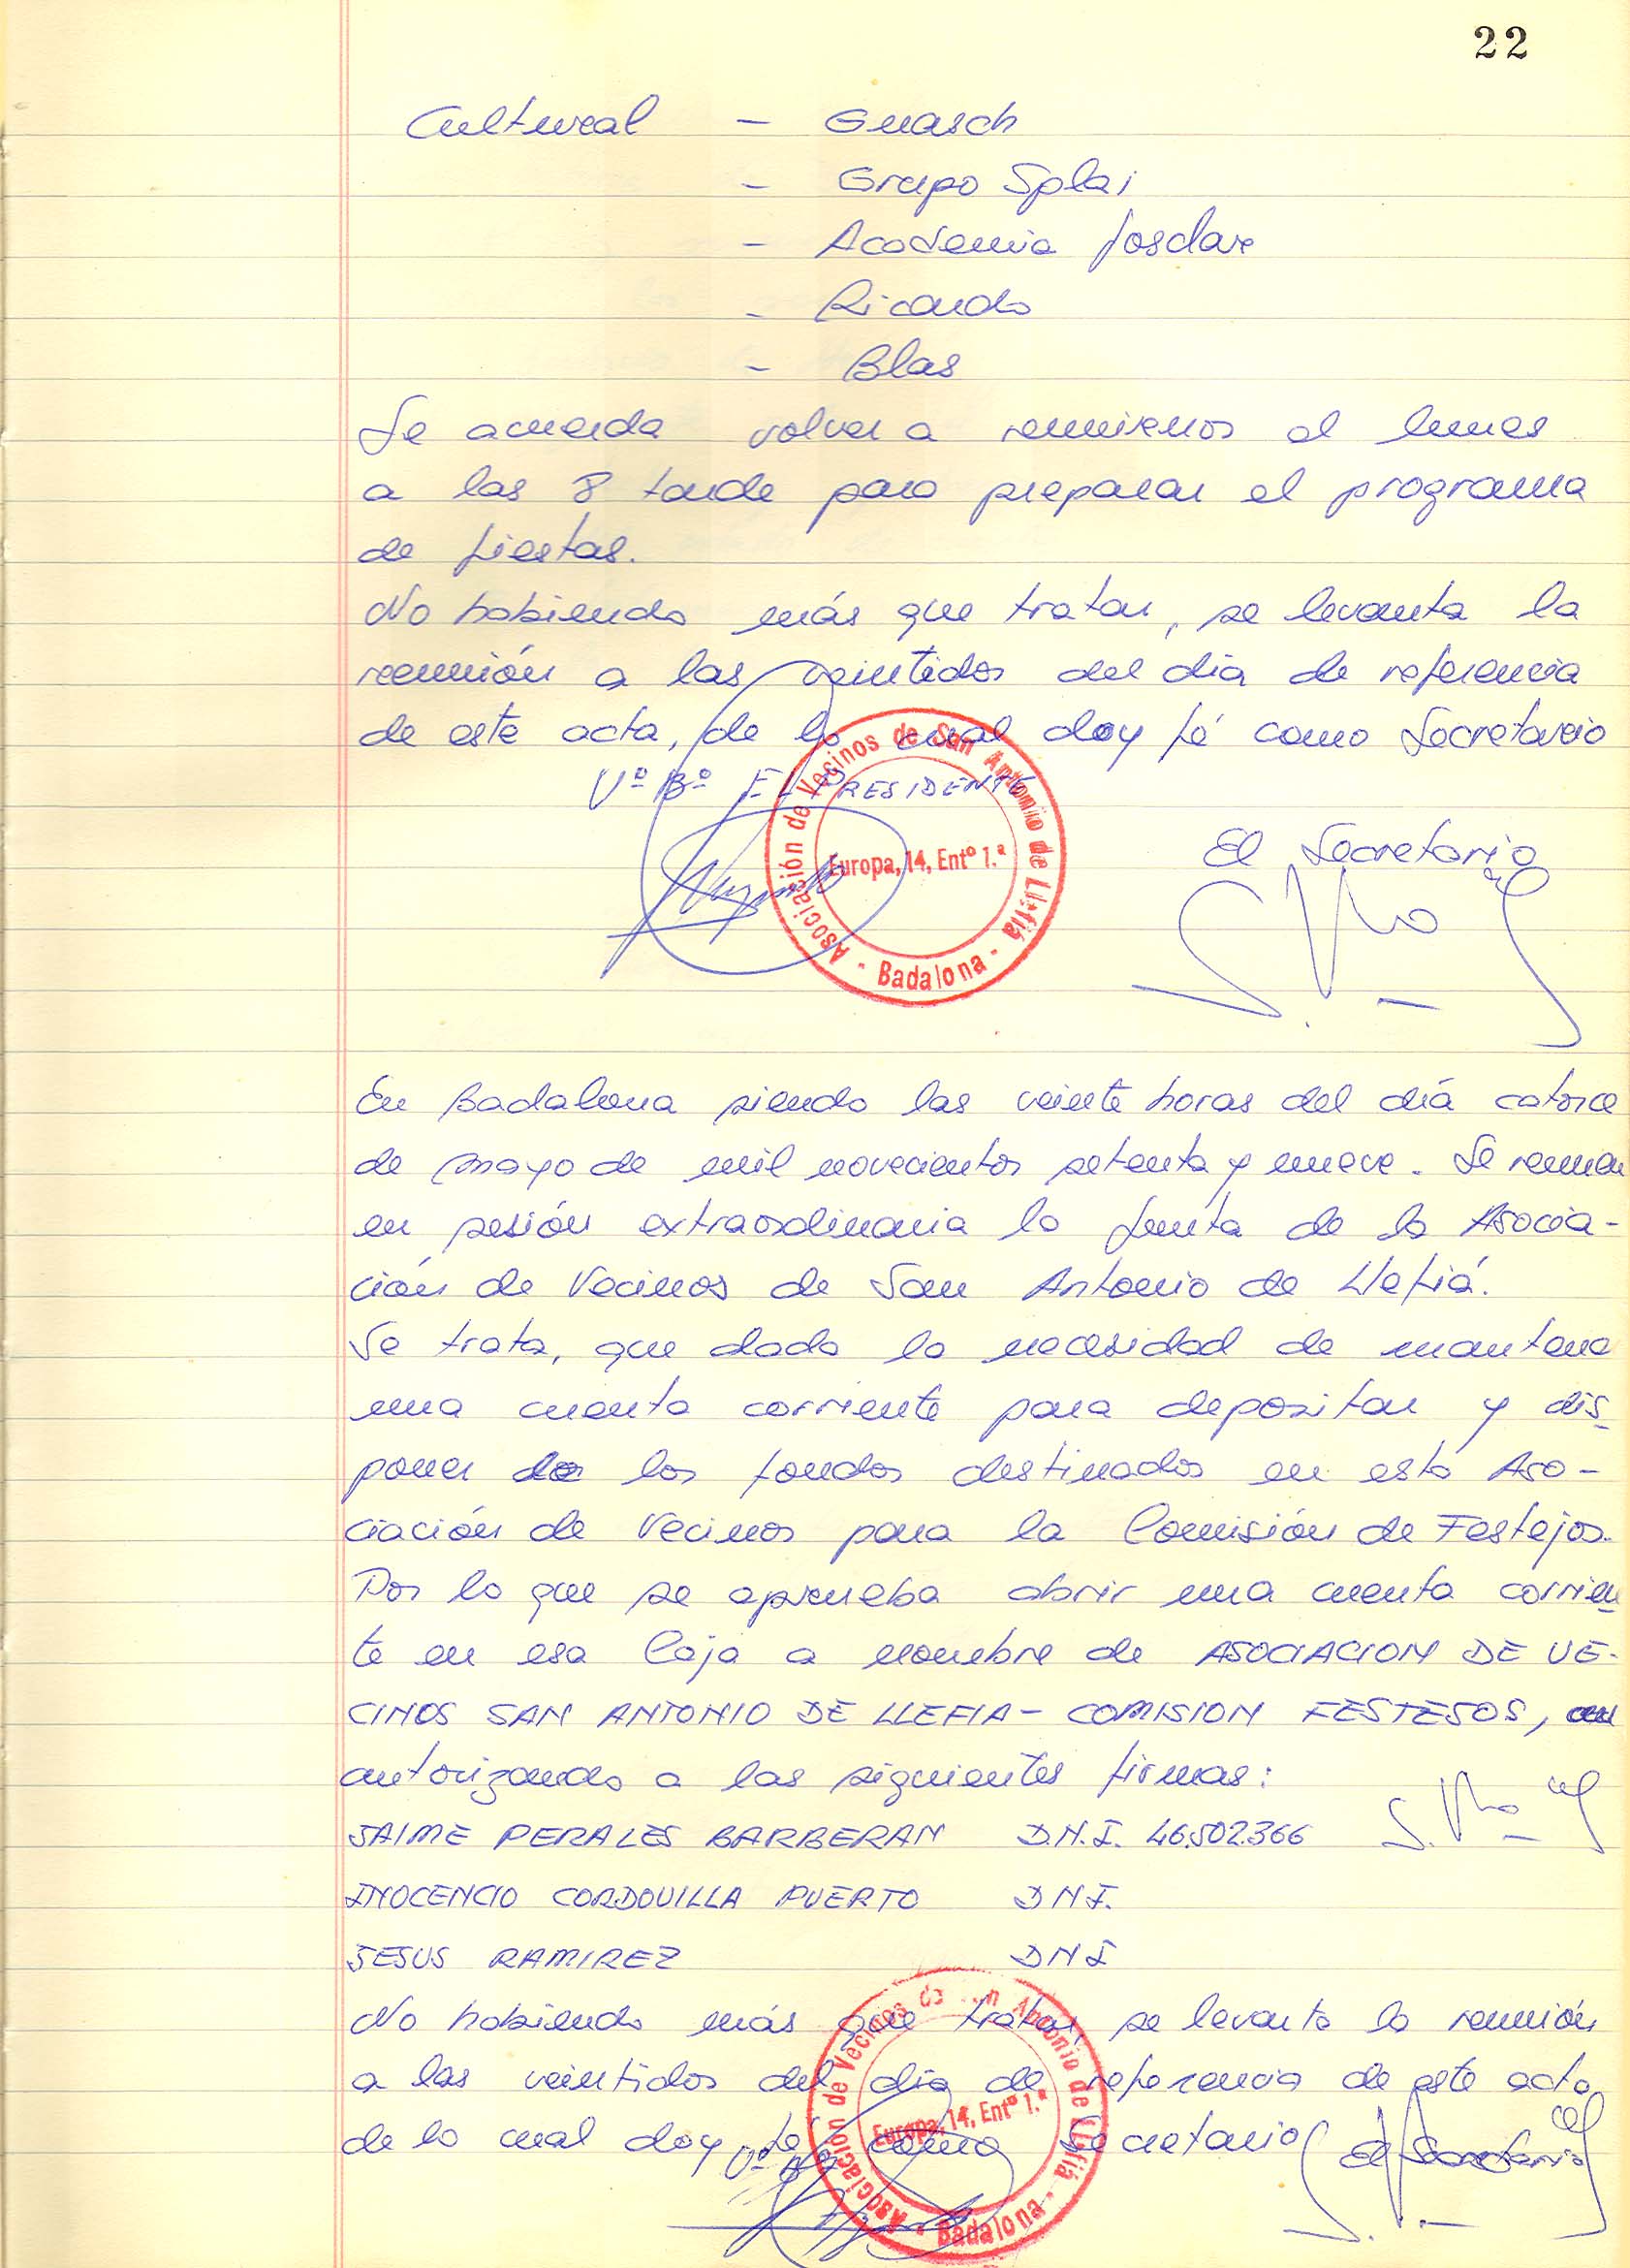 22
Cultural - Guasch
- Grupo Splai
- Academia Josclare
- Ricardo
- Blas
Se acuerda volver a reunirnos el lunes
a las 8 tarde para preparar el programa
de fiestas.
No habiendo más que tratar, se levanta la
reunión a las veintidos del dia de referencia
de este acta, de lo cual doy fé como Secretario
Vº Bº EL PRESIDENTE
Asociación de Vecinos de San Antonio de Llefiá - Badalona -
Europa, 14, Entº 1.ª
El Secretario
En Badalona siendo las veinte horas del día catorce
de mayo de mil novecientos setenta y nueve. Se reunen
en sesión extraordinaria la Junta de la Asocia-
ción de Vecinos de San Antonio de Llefiá.
Se trata, que dada la necesidad de mantener
una cuenta corriente para depositar y dis-
poner de los fondos destinados en esta Aso-
ciación de Vecinos para la Comisión de Festejos.
Por lo que se aprueba abrir una cuenta corrien
te en esa Caja a nombre de ASOCIACION DE VE-
CINOS SAN ANTONIO DE LLEFIA - COMISION FESTEJOS,
autorizando a las siguientes firmas:
JAIME PERALES BARBERAN D.N.I. 46.502.366
INOCENCIO CORDOVILLA PUERTO DNI.
JESUS RAMIREZ DNI
No habiendo más que tratar, se levanta la reunión
a las veintidos del dia de referencia de este acta
de lo cual doy fé como Secretario El Secretario
Vº Bº
Asociación de Vecinos de San Antonio de Llefiá - Badalona -
Europa, 14, Entº 1.ª